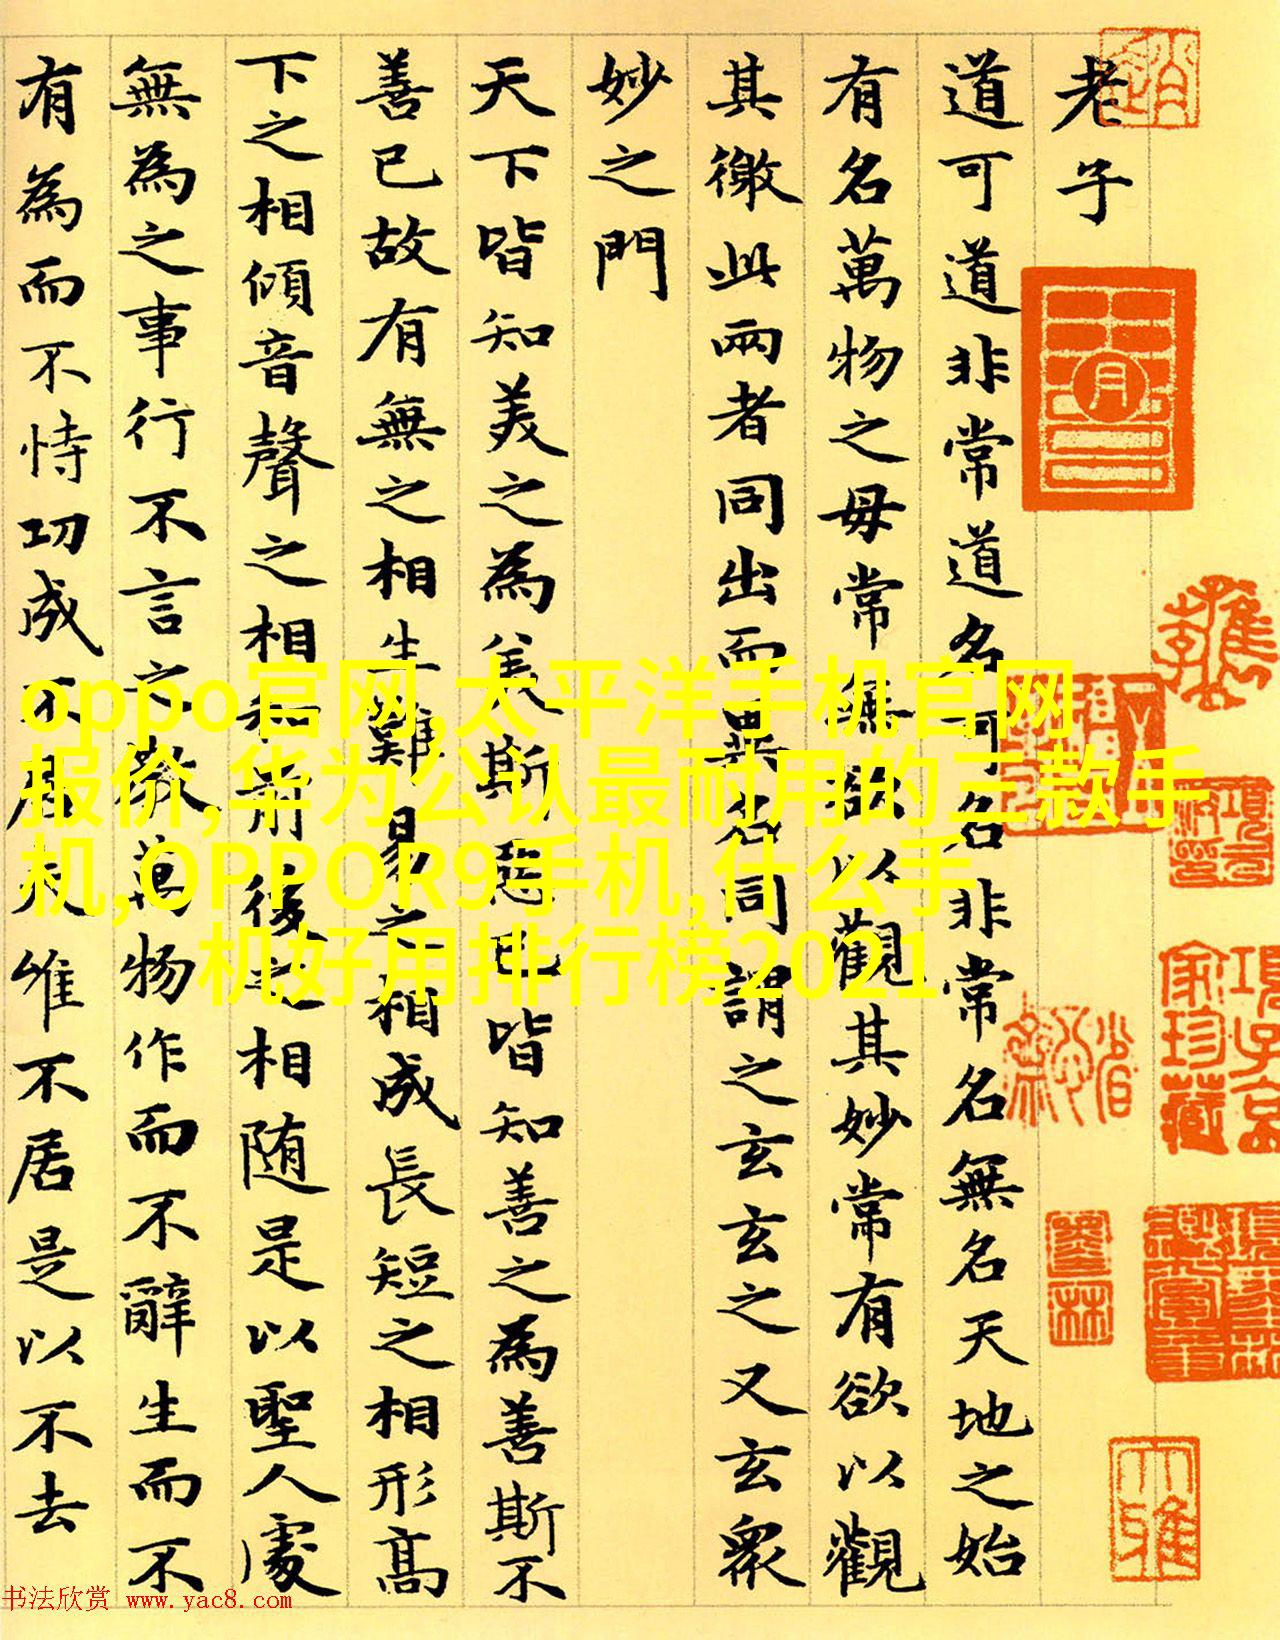 老子
道可道非常道名可名非常名無名天地之始
有名萬物之母常無欲以觀其妙常有欲以觀
其徼此兩者同出而異名同謂之玄玄之又玄衆
妙之門
天下皆知美之為美斯惡已皆知善之為善斯不
善已故有無之相生難易之相成長短之相形高
下之相傾音聲之相和前後之相随是以聖人處
無為之事行不言之教萬物作而不辭生而不
有為而不恃功成不居夫唯不居是以不去
oppo官网,太平洋手机官网
报价,华为公认最耐用的三款手
机,OPPOR9手机,什么手
机好用排行榜2021
項子京
家珍藏
大雅
书法欣赏 www.yac8.com